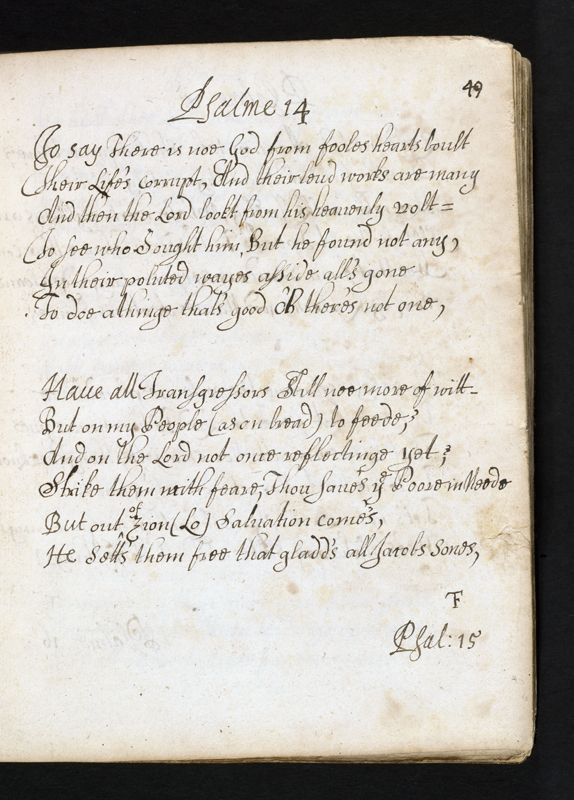 49
Psalme 14
To say There is noe God from fooles hearts boult
Their Life's corrupt, And their leud works are many
And then the Lord lookt from his heavenly volt=
To see who Sought him, But he found not any,
In their poluted wayes asside all's gone
To doe a thinge that's good O there's not one,
Haue all Transgressors Still noe more of witt-
But on my People (as on bread) to feede,
And on the Lord not once reflectinge yet;
Strike them with feare, Thou Saues ye Poore in Neede
But out of Zion (Lo) Salvation comes,
He Setts them free that gladd's all Jacobs Sones,
F
Psal: 15